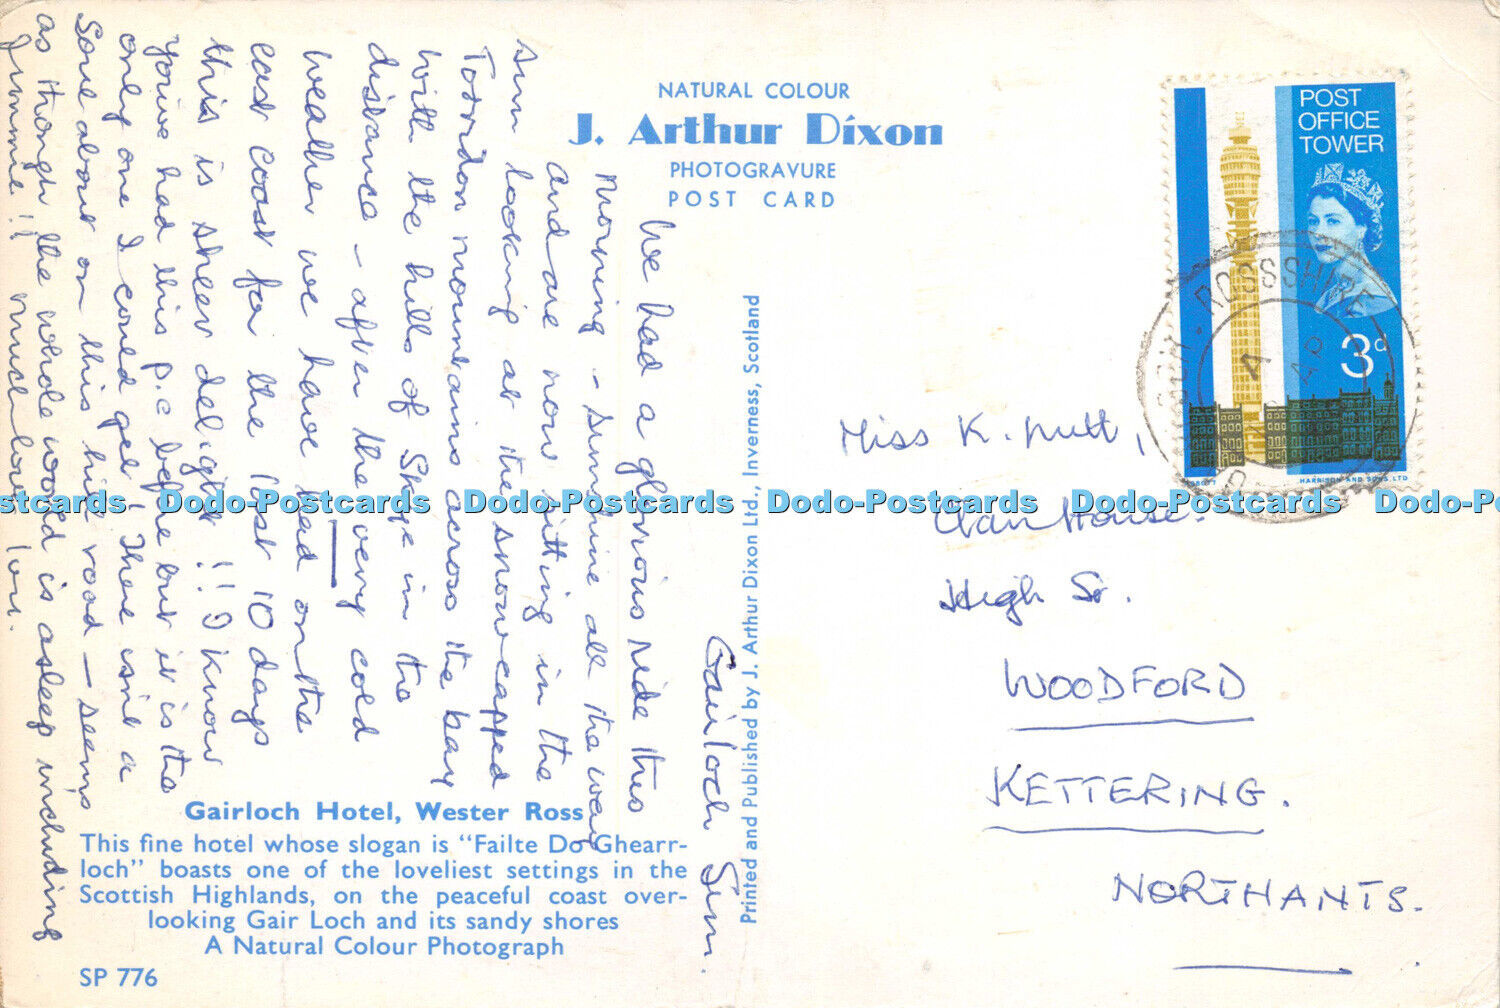 NATURAL COLOUR
J. Arthur Dixon
PHOTOGRAVURE
POST CARD
Gairloch Sun.
We had a glorious ride this
morning - sunshine all the way
and are now sitting in the
sun looking at the snowcapped
Torridon mountains across the bay
with the hills of Skye in the
distance - after the very cold
weather we have had on the
east coast for the last 10 days
this is sheer delight!! I know
you've had this p.c before but it is the
only one I could get! There isn't a
soul about on this hill road - seems
as though the whole world is asleep including
Jimmie!! much love Lou.
Gairloch Hotel, Wester Ross
This fine hotel whose slogan is "Failte Do Ghearr-
loch" boasts one of the loveliest settings in the
Scottish Highlands, on the peaceful coast over-
looking Gair Loch and its sandy shores
A Natural Colour Photograph
SP 776
Printed and Published by J. Arthur Dixon Ltd., Inverness, Scotland
POST
OFFICE
TOWER
3d
HARRISON AND SONS LTD
ROSS-SHIRE
AP
Miss K. Nutt,
Clan House.
High St.
WOODFORD
KETTERING.
NORTHANTS.
Dodo-Postcards Dodo-Postcards Dodo-Postcards Dodo-Postcards Dodo-Postcards